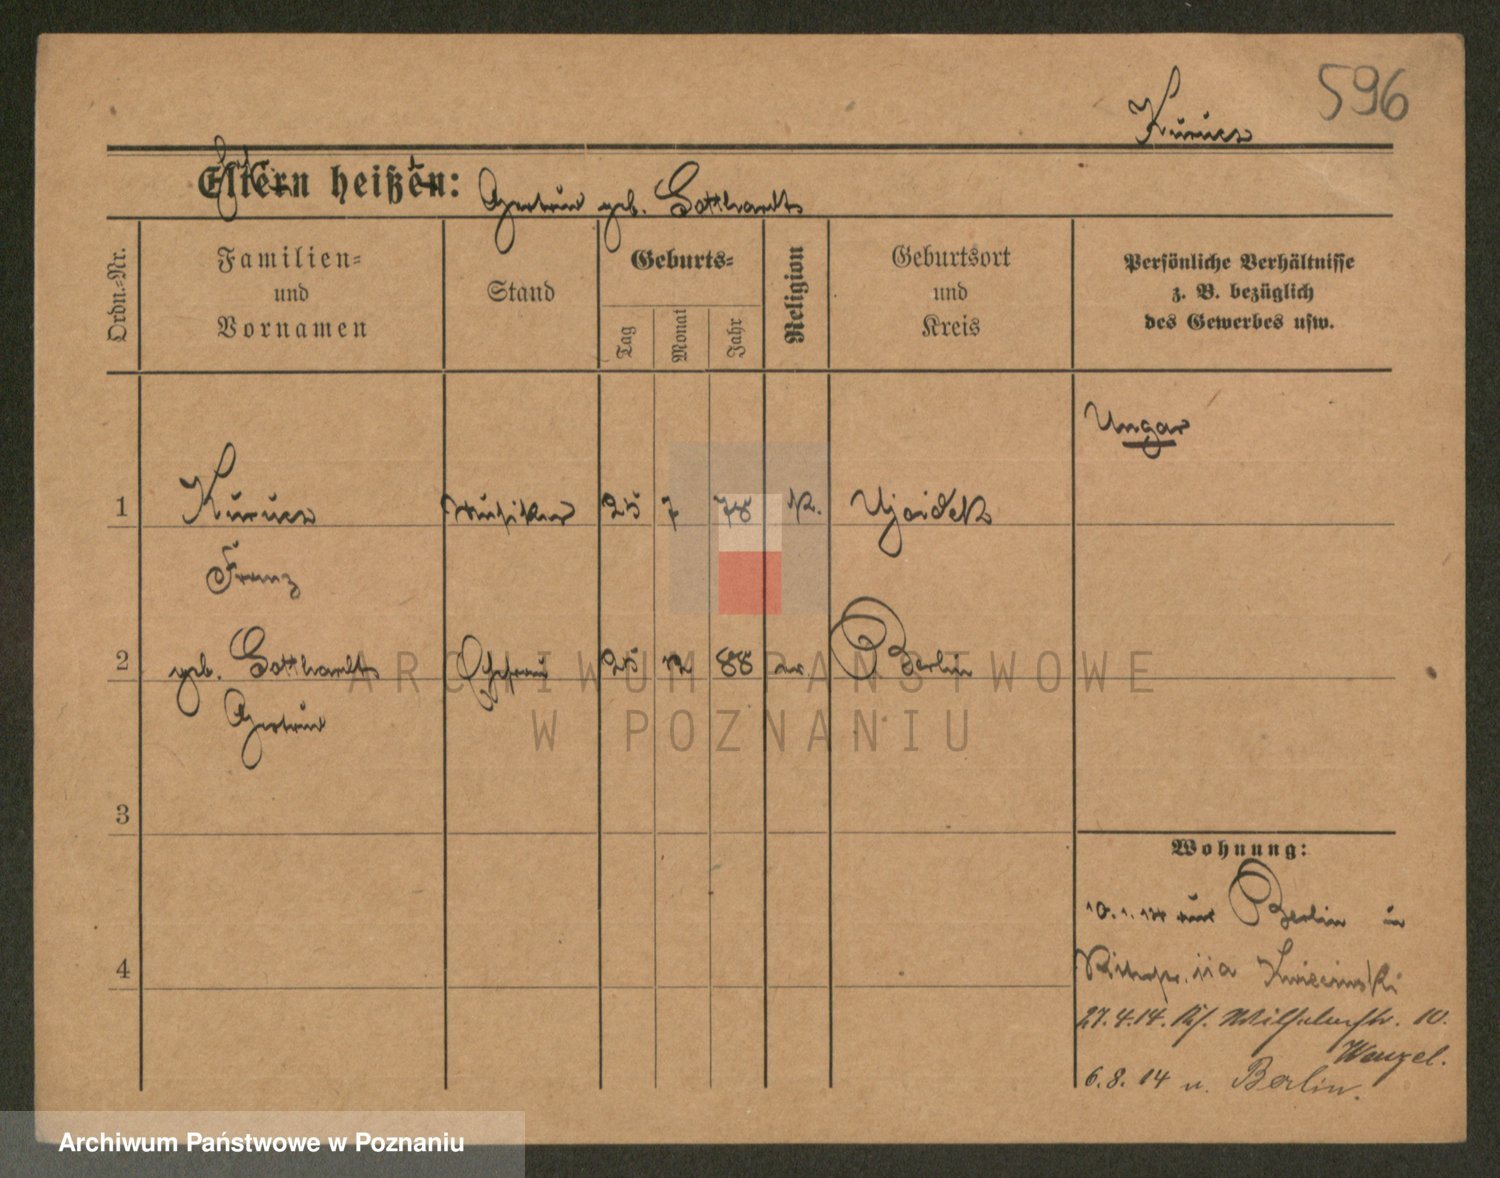 596
Kurucz
Eltern heißen:
Gertrud geb. Gotthardts
Ordn.-Nr.
Familien-
und
Vornamen
Stand
Geburts-
Tag
Monat
Jahr
Religion
Geburtsort
und
Kreis
Persönliche Verhältnisse
z. B. bezüglich
des Gewerbes usw.
Ungar
1 Kurucz Musiker 25 7 78 K. Ujvidek
Franz
2 geb. Gotthardts Ehefrau 25 12 88 ev. Berlin
Gertrud
3
4
Wohnung:
10.1.14 aus Berlin in
Ritterstr. 11a
27.4.14. Wilhelmstr. 10.
Wenzel.
6.8.14 n. Berlin.
ARCHIWUM PAŃSTWOWE
W POZNANIU
Archiwum Państwowe w Poznaniu